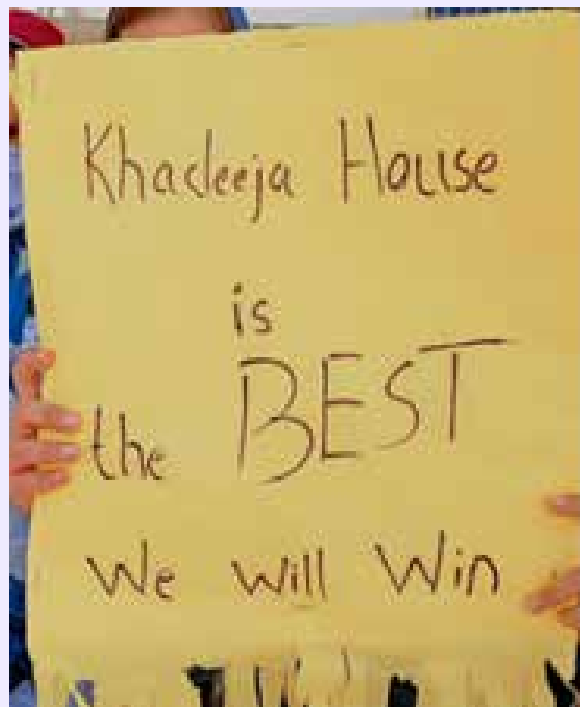 Khadeeja House
is
the BEST
We Will Win